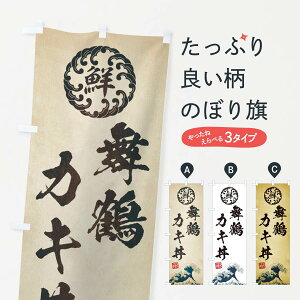 たっぷり
良い柄
のぼり旗
やったね
えらべる3タイプ
鮮
舞鶴
カキ丼
A
B
C
鮮
舞鶴
カキ丼
鮮
舞鶴
カキ丼
鮮
舞鶴
カキ丼